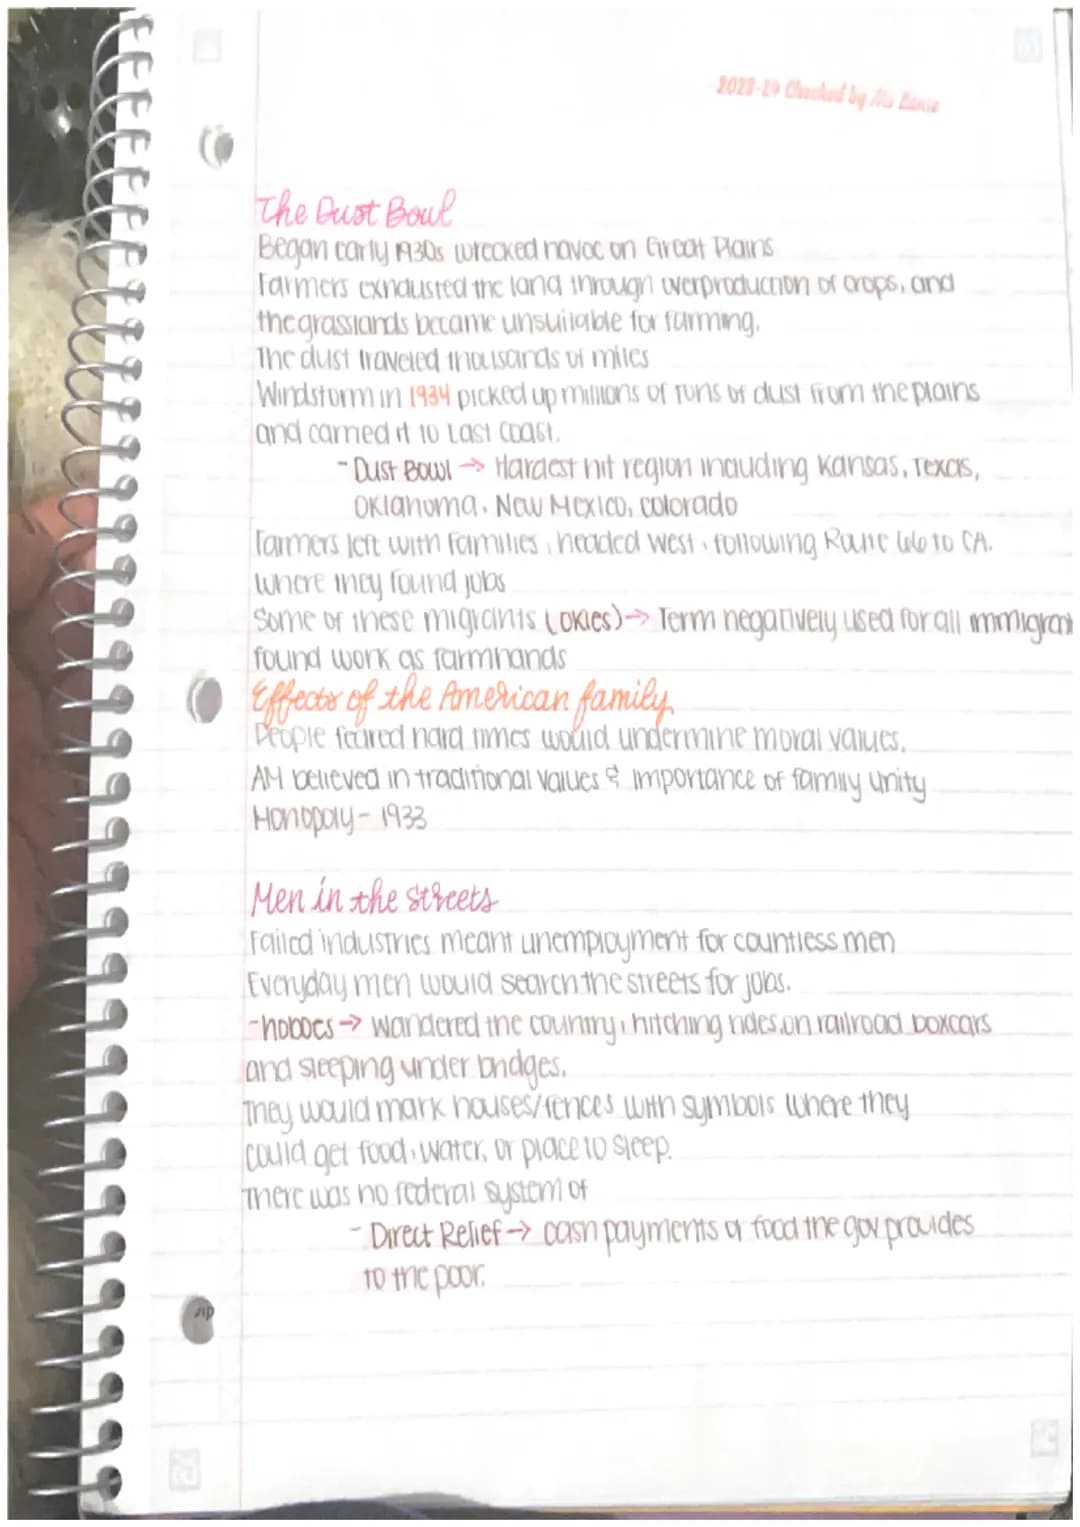 The Dust Bowl
Began early 1930s wrecked havoc on Great Plains
Farmers exhausted the land through overproduction of crops, and
the grasslands became unsuitable for farming.
The dust traveled thousands of miles
Windstorm in 1934 picked up millions of tons of dust from the plains
and carried it to East Coast.
- Dust Bowl → Hardest hit region including Kansas, Texas,
Oklahoma, New Mexico, Colorado
Farmers left with families, headed west, following Route 66 to CA.
where they found jobs
Some of these migrants (OKies) → Term negatively used for all immigrant
found work as farmhands
Effects of the American family
People feared hard times would undermine moral values.
AM believed in traditional values & importance of family unity
Monopoly - 1933
Men in the streets
Failed industries meant unemployment for countless men
Everyday men would search the streets for jobs.
- hoboes → wandered the country, hitching rides on railroad boxcars
and sleeping under bridges.
They would mark houses/fences with symbols where they
could get food, water, or place to sleep.
There was no federal system of
- Direct Relief → cash payments or food the gov provides
to the poor.